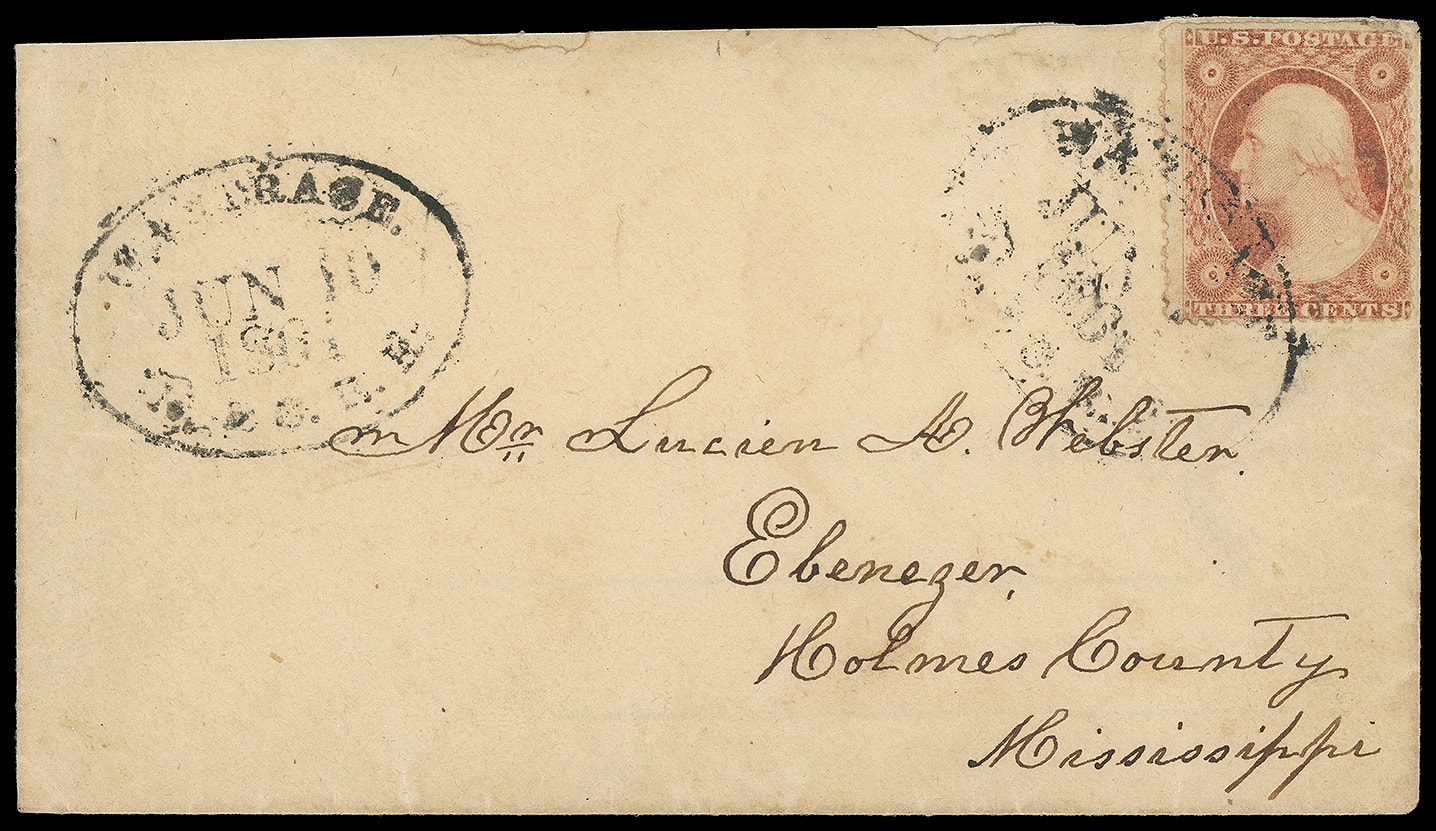 U.S. POSTAGE
THREE CENTS
JUN 10
1861
R. R.
Mr. Lucien A. Webster.
Ebenezer,
Holmes County
Mississippi